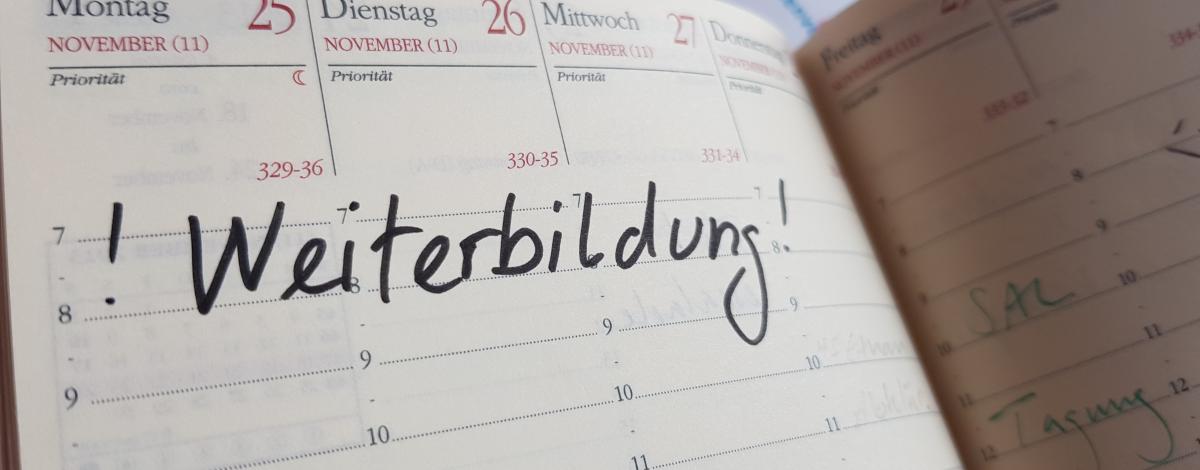 Montag 25 Dienstag 26 Mittwoch 27 Donnerstag Freitag
NOVEMBER (11) NOVEMBER (11) NOVEMBER (11) NOVEMBER (11) NOVEMBER (11)
Priorität Priorität Priorität Priorität Priorität
329-36 330-35 331-34 333-32 334-
7 7 7 7 7
! Weiterbildung!
8 8 8 8
9 9 9 9 9
10 10 10 10
SAL
11 11 11 11
Tagung
12 12